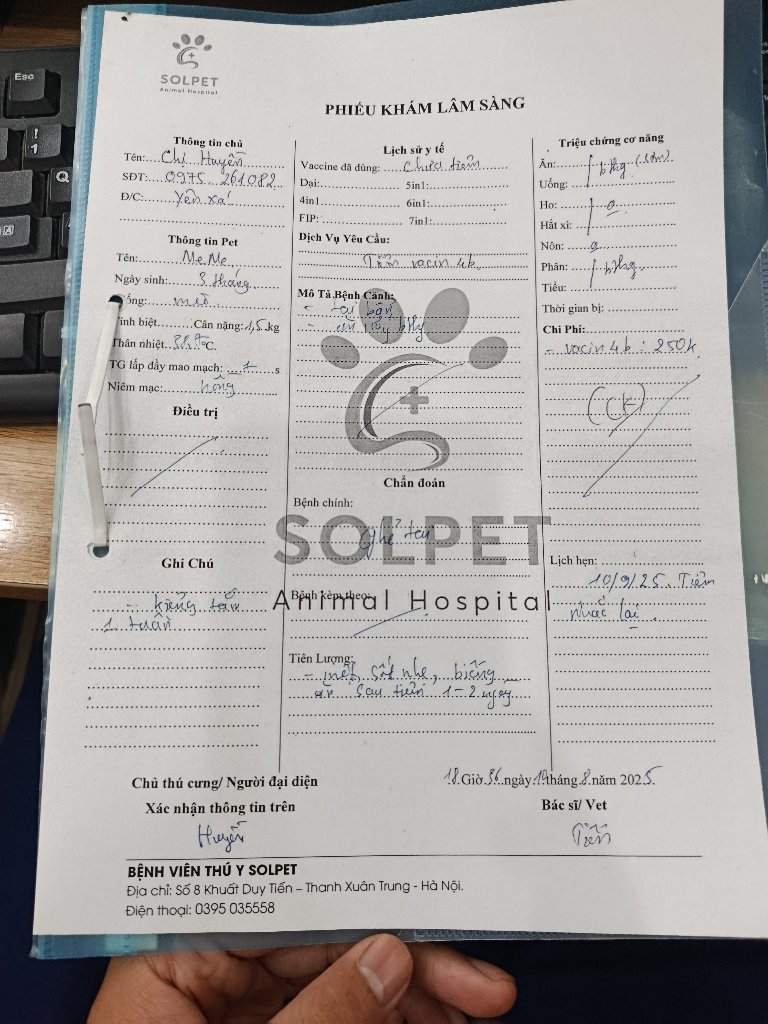 SOLPET
Animal Hospital
PHIẾU KHÁM LÂM SÀNG
Thông tin chủ
Tên: Chị Huyền
SĐT: 0975 261082
Đ/C: Yên xá
Thông tin Pet
Tên: Me Me
Ngày sinh: 3 tháng
ống: mèo
ính biệt Cân nặng: 1,5 kg
Thân nhiệt °C.
TG lấp đầy mao mạch: 1 s
Niêm mạc: hồng
Điều trị
Ghi Chú
- kiêng tắm
1 tuần
Lịch sử y tế
Vaccine đã dùng: chưa tiêm
Dại: 5in1:
4in1 6in1:
FIP: 7in1:
Dịch Vụ Yêu Cầu:
Tiêm vacin 4b
Mô Tả Bệnh Cảnh:
- tai bẩn
- ăn uống bthg
Chẩn đoán
Bệnh chính:
Ghẻ tai
SOLPET
Animal Hospital
Bệnh kèm theo:
Tiên Lượng:
- mệt, sốt nhẹ, biếng
ăn sau tiêm 1-2 ngày
Triệu chứng cơ năng
Ăn: bthg
Uống:
Ho: o
Hắt xì:
Nôn: o
Phân: bthg
Tiểu:
Thời gian bị:
Chi Phí:
- vacin 4b : 250k
(CK)
Lịch hẹn:
10/9/25. Tiêm
nhắc lại.
Chủ thú cưng/ Người đại diện
Xác nhận thông tin trên
Huyền
18 Giờ 36 ngày 19 tháng 8 năm 2025
Bác sĩ/ Vet
Tiến
BỆNH VIÊN THÚ Y SOLPET
Địa chỉ: Số 8 Khuất Duy Tiến – Thanh Xuân Trung - Hà Nội.
Điện thoại: 0395 035558
Esc
!
1
Q